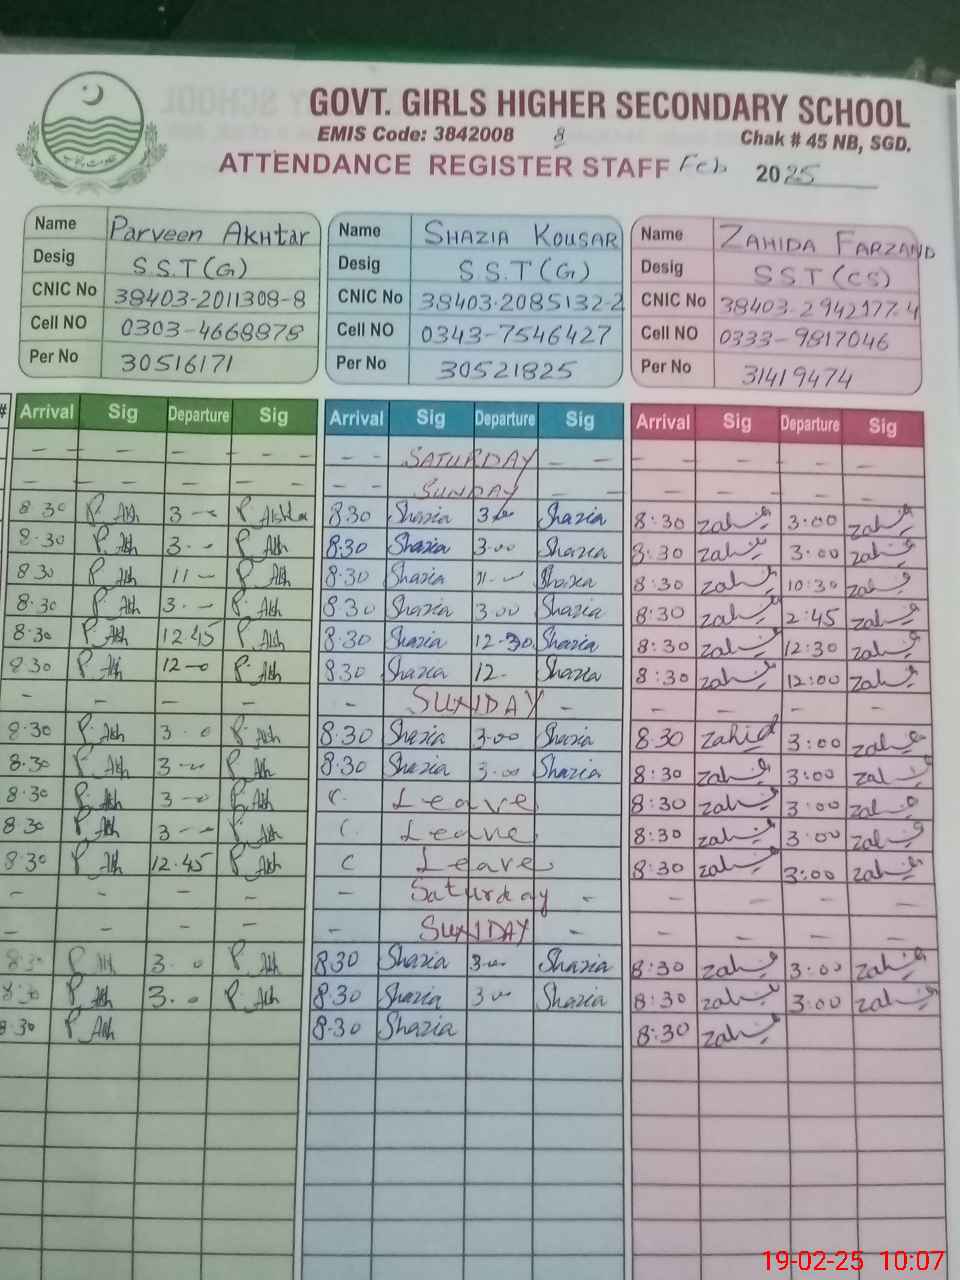 GOVT. GIRLS HIGHER SECONDARY SCHOOL
EMIS Code: 3842008 8 Chak # 45 NB, SGD.
ATTENDANCE REGISTER STAFF Feb 2025
Name Parveen Akhtar Name SHAZIA KOUSAR Name ZAHIDA FARZAND
Desig S.S.T(G) Desig S.S.T(G) Desig SST(CS)
CNIC No 38403-2011308-8 CNIC No 38403-2085132-2 CNIC No 38403-2942977-4
Cell NO 0303-4668878 Cell NO 0343-7546427 Cell NO 0333-9817046
Per No 30516171 Per No 30521825 Per No 31419474
# Arrival Sig Departure Sig Arrival Sig Departure Sig Arrival Sig Departure Sig
- - - - - - - - SATURDAY - - - - - -
- - - - - - - - SUNDAY - - - - - -
8 30 P. Akh 3 -- 8.30 Shazia 3.00 Shazia 8:30 3:00
8.30 P. Akh 3 -- P. Akh 8.30 Shazia 3.00 Shazia 8:30 3:00
8 30 P. Akh 11 - P. Akh 8.30 Shazia 11 -- Shazia 8:30 10:30
8.30 P. Akh 3 -- P. Akh 8.30 Shazia 3.00 Shazia 8:30 2:45
8.30 P. Akh 12.45 P. Akh 8.30 Shazia 12-30 Shazia 8:30 12:30
8.30 P. Akh 12-0 P. Akh 8.30 Shazia 12- Shazia 8:30 12:00
- - - - - SUNDAY - - - - -
8.30 P. Akh 3 0 P. Akh 8.30 Shazia 3.00 Shazia 8.30 Zahid 3:00
8.30 P. Akh 3 -- P. Akh 8.30 Shazia 3.00 Shazia 8:30 3:00
8.30 P. Akh 3 -0 P. Akh C. Leave 8:30 3:00
8 30 P. Akh 3 -- P. Akh C Leave 8:30 3:00
8.30 P. Akh 12.45 P. Akh C Leave 8:30 3:00
- - - - - Saturday - - - - -
- - - - - SUNDAY - - - -
8.30 P. Akh 3. 0 P. Akh 830 Shazia 3.00 Shazia 8:30 3:00
8.30 P. Akh 3. 0 P. Akh 8.30 Shazia 3.00 Shazia 8:30 3:00
8.30 P. Akh 8.30 Shazia 8:30
19-02-25 10:07